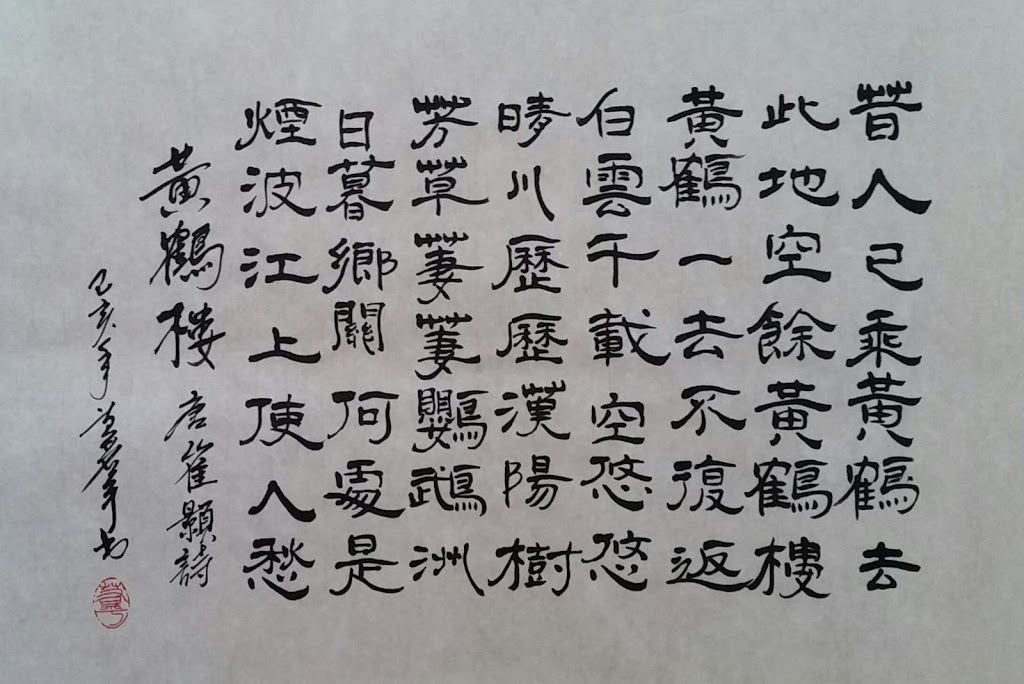 昔人已乘黃鶴去
此地空餘黃鶴樓
黃鶴一去不復返
白雲千載空悠悠
晴川歷歷漢陽樹
芳草萋萋鸚鵡洲
日暮鄉關何處是
煙波江上使人愁
黃鶴樓 唐崔顥詩
己亥年